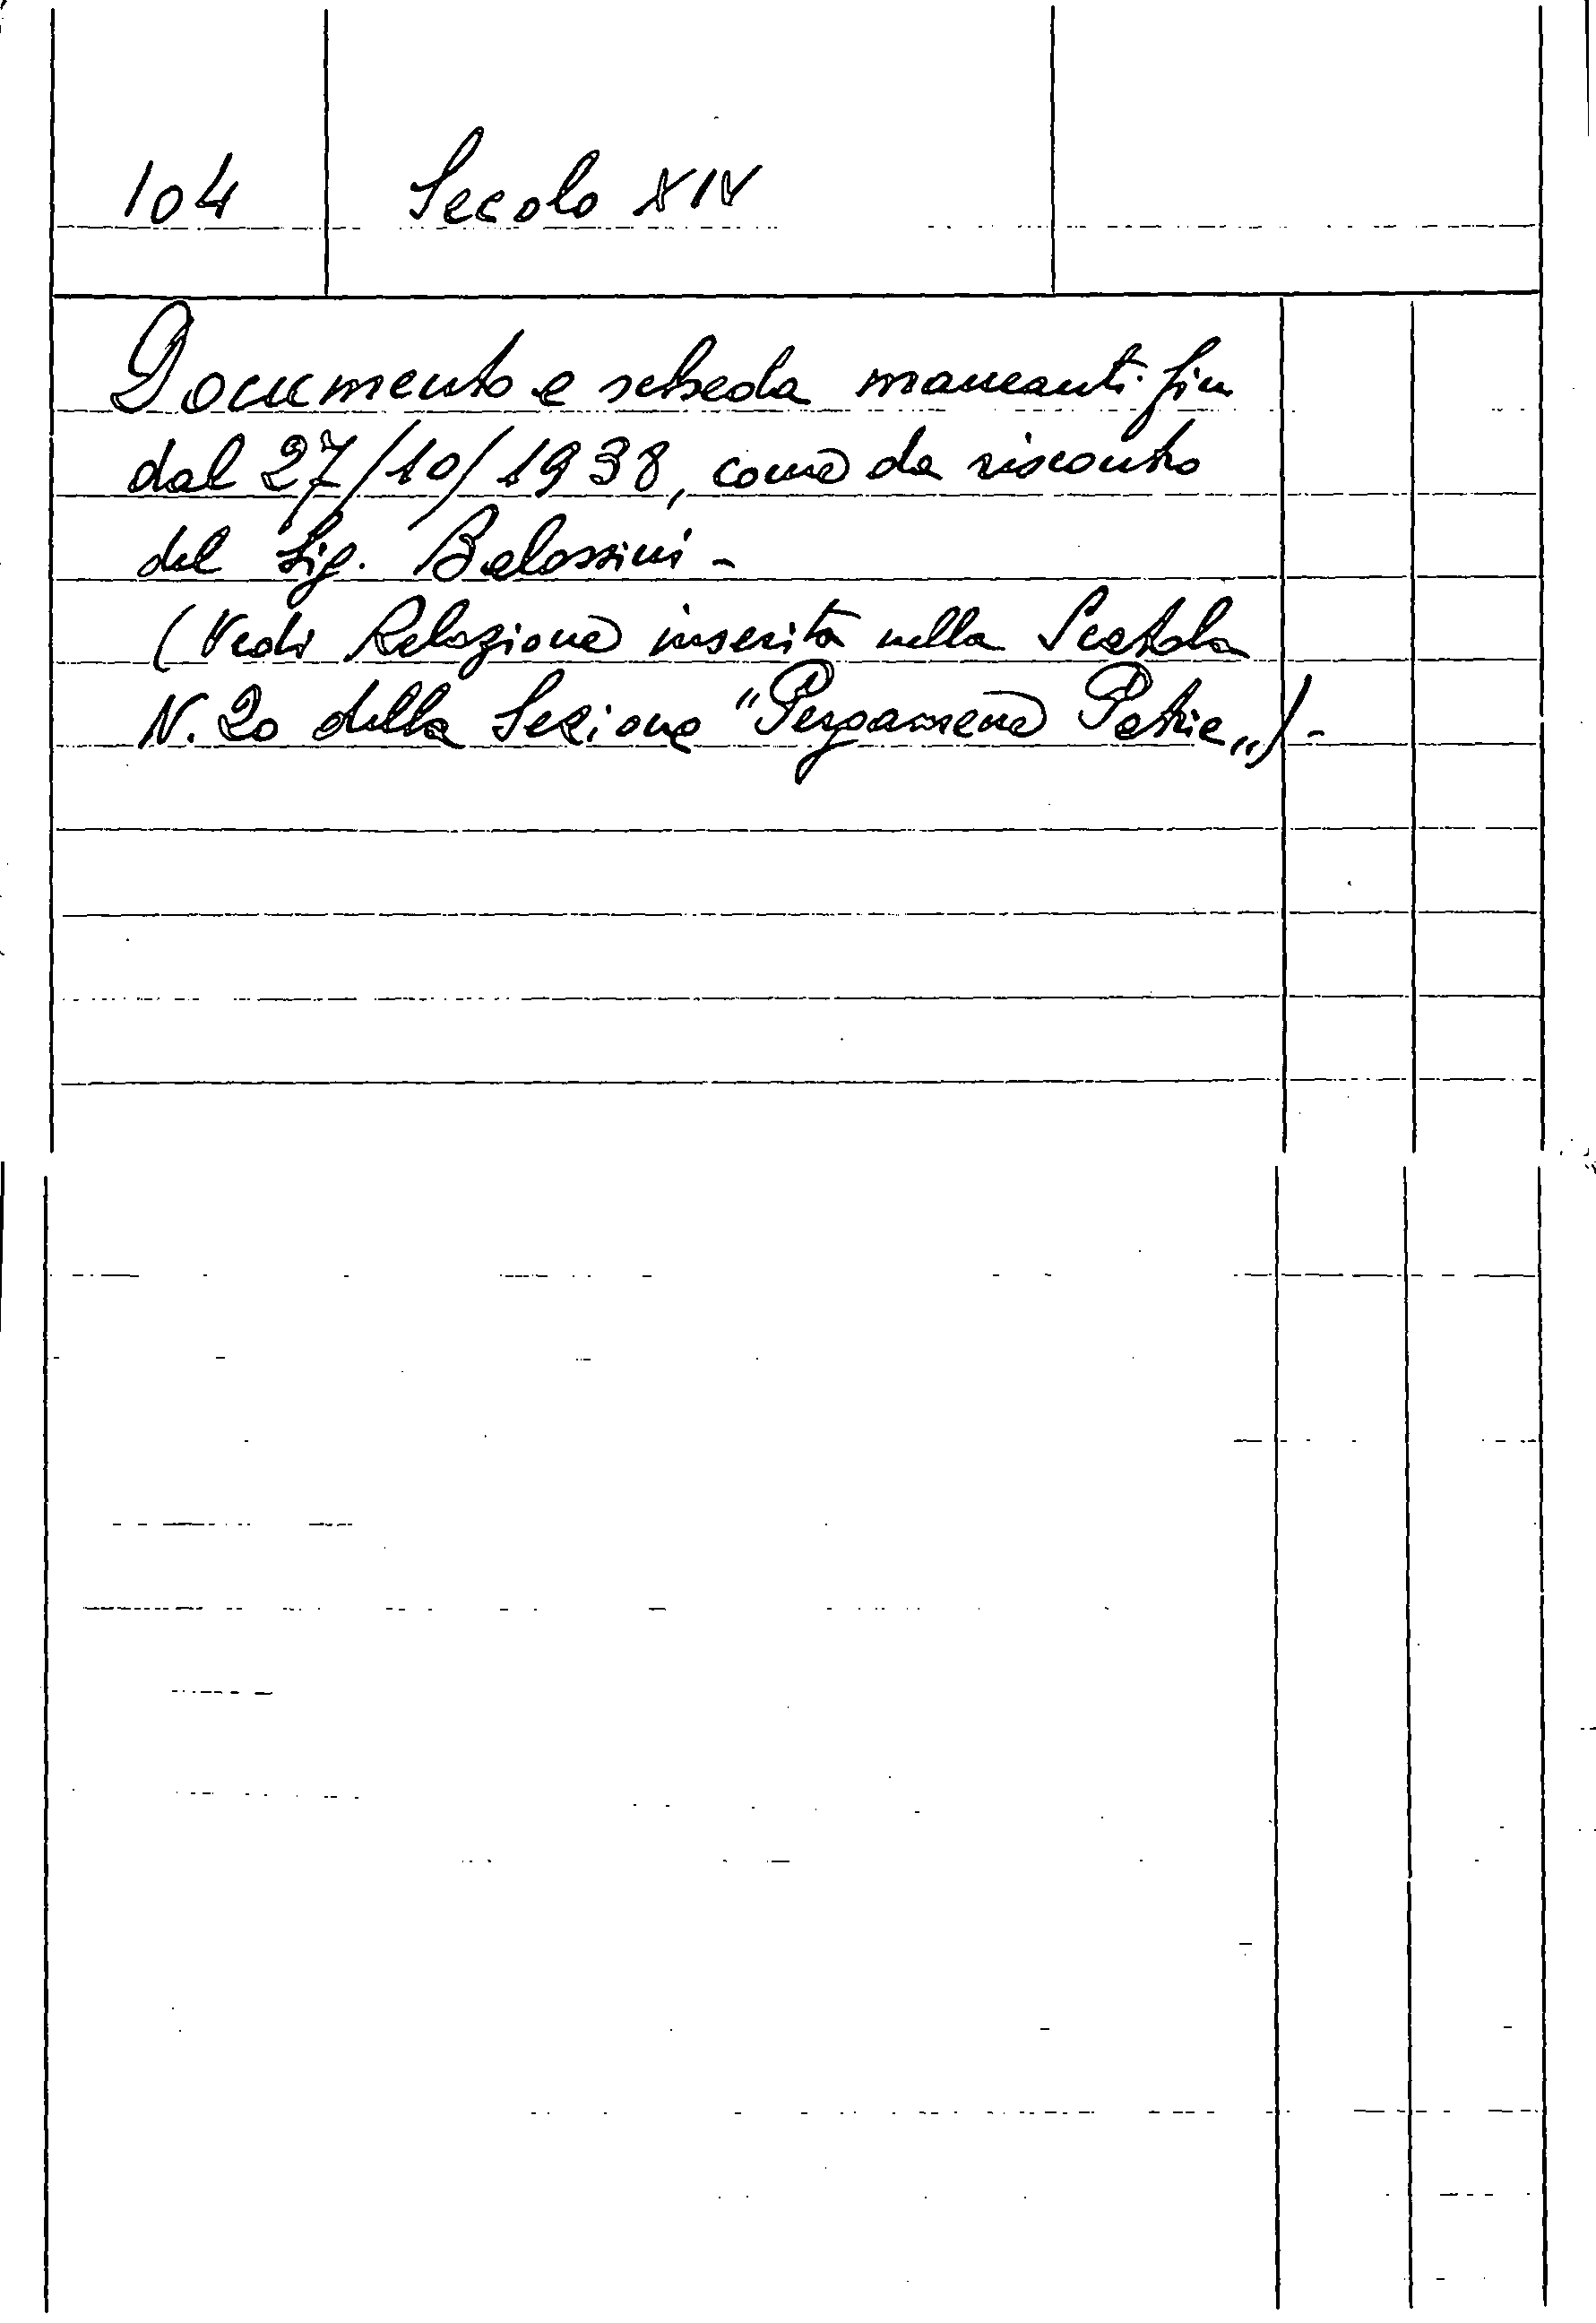 104 Secolo XIV
Documento e scheda mancanti fin
dal 27/10/1938, come da riscontro
del Sig. Balossini -
(Vedi Relazione inserita nella Scatola
N. 20 della Sezione "Pergamene Patrie„) -